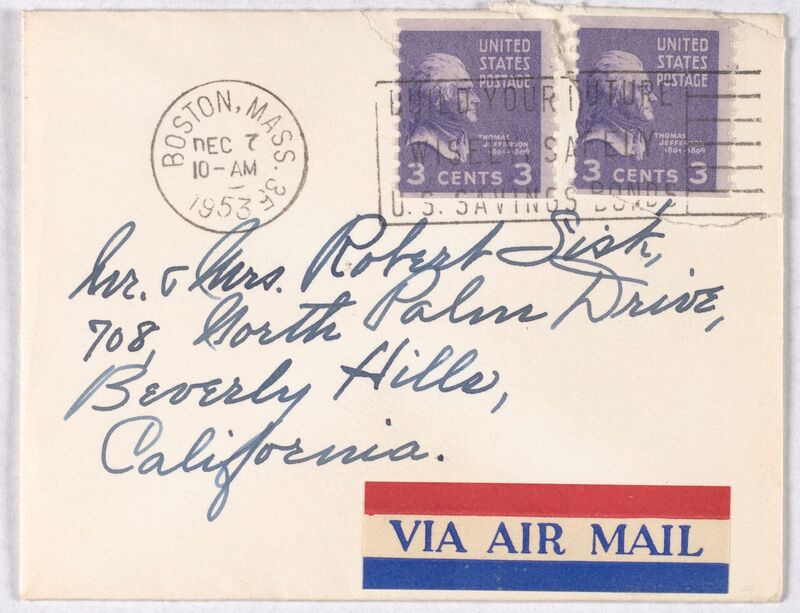 UNITED
STATES
POSTAGE
THOMAS
JEFFERSON
1801-1809
3 CENTS 3
UNITED
STATES
POSTAGE
THOMAS
JEFFERSON
1801-1809
3 CENTS 3
BOSTON, MASS. 3
DEC 7
10-AM
1953
BUILD YOUR FUTURE
WISELY SAFELY
U.S. SAVINGS BONDS
Mr. & Mrs. Robert Sisk,
708, North Palm Drive,
Beverly Hills,
California.
VIA AIR MAIL